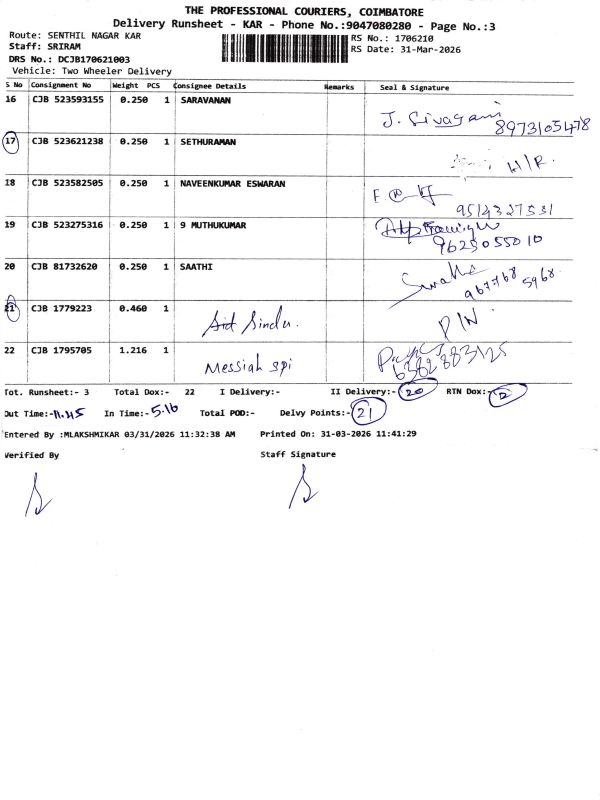 THE PROFESSIONAL COURIERS, COIMBATORE
Delivery Runsheet - KAR - Phone No.:9047080280 - Page No.:3
Route: SENTHIL NAGAR KAR RS No.: 1706210
Staff: SRIRAM RS Date: 31-Mar-2026
DRS No.: DCJB170621003
Vehicle: Two Wheeler Delivery
S No Consignment No Weight PCS Consignee Details Remarks Seal & Signature
16 CJB 523593155 0.250 1 SARAVANAN J. Sivagami 8973105478
17 CJB 523621238 0.250 1 SETHURAMAN H/R.
18 CJB 523582505 0.250 1 NAVEENKUMAR ESWARAN 9514327531
19 CJB 523275316 0.250 1 9 MUTHUKUMAR 9629055010
20 CJB 81732620 0.250 1 SAATHI 967768 5968
21 CJB 1779223 0.460 1 Sindu. D/N.
22 CJB 1795705 1.216 1 Messiah spi 6382883125
Tot. Runsheet:- 3 Total Dox:- 22 I Delivery:- II Delivery:- 20 RTN Dox:- 2
Out Time:-11.45 In Time:-5.10 Total POD:- Delvy Points:- 21
Entered By :MLAKSHMIKAR 03/31/2026 11:32:38 AM Printed On: 31-03-2026 11:41:29
Verified By Staff Signature